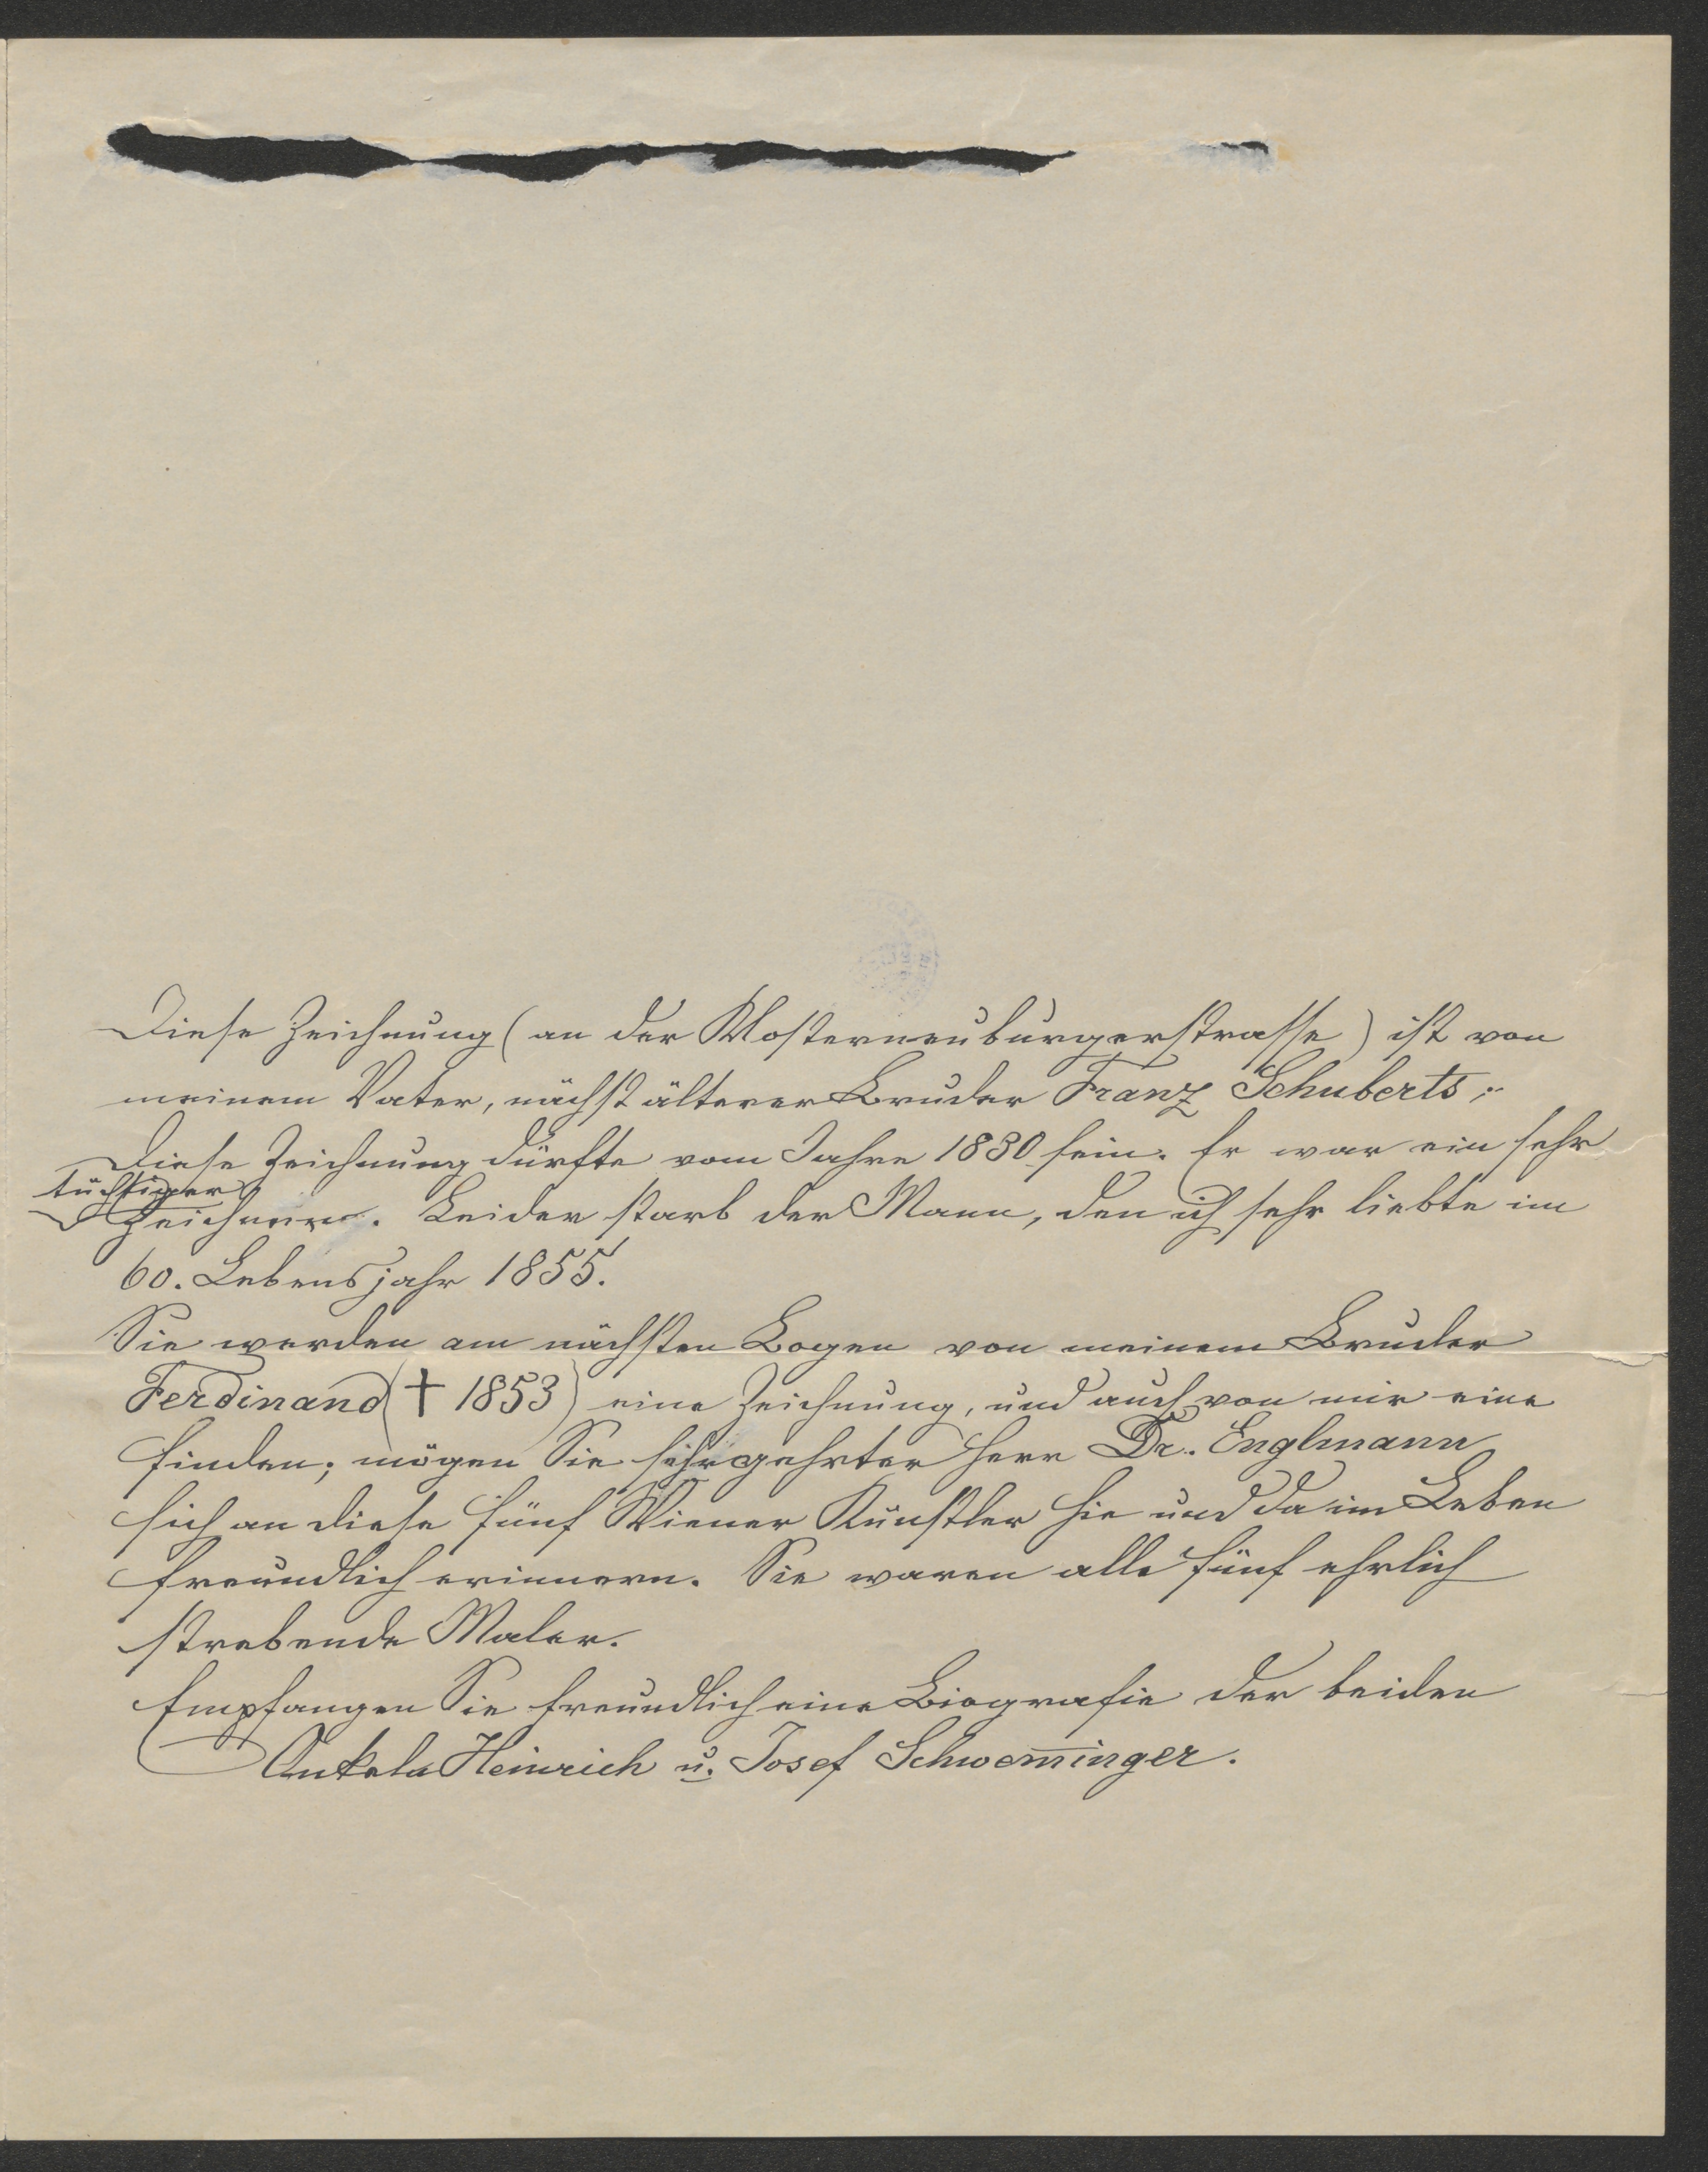 Diese Zeichnung (an der Klosterneuburgerstrasse) ist von
meinem Vater, nächst älterer Bruder Franz Schuberts;
Diese Zeichnung dürfte vom Jahre 1830 sein. Er war ein sehr
tüchtiger
Zeichner. Leider starb der Mann, den ich sehr liebte im
60. Lebensjahr 1855.
Sie werden am nächsten Bogen von meinem Bruder
Ferdinand († 1853) eine Zeichnung, und auch von mir eine
finden; mögen Sie sehr geehrter Herr Dr. Englmann
sich an diese fünf Wiener Künstler hie und da im Leben
freundlich erinnern. Sie waren alle fünf ehrlich
strebende Maler.
Empfangen Sie freundlich eine Biografie der beiden
Onkels Heinrich u. Josef Schwem̅inger.